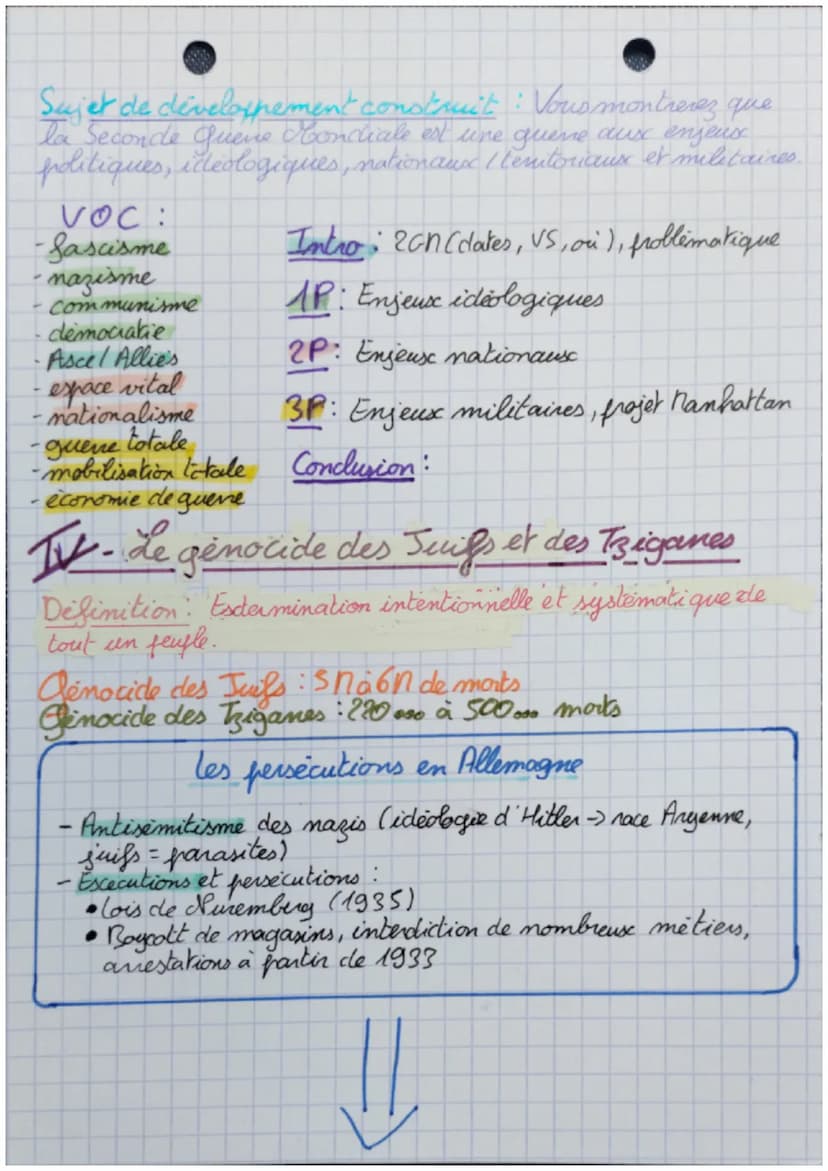 Sujet de développement construit : Vous montrerez que
la Seconde Guerre Mondiale est une guerre aux enjeux
politiques, idéologiques, nationaux / territoriaux et militaires.
VOC :
- fascisme
- nazisme
- communisme
- démocratie
- Axe / Alliés
- espace vital
- nationalisme
- guerre totale
- mobilisation totale
- économie de guerre
Intro : 2GM (dates, VS, où), problématique
1P : Enjeux idéologiques
2P : Enjeux nationaux
3P : Enjeux militaires, projet Manhattan
Conclusion :
IV - Le génocide des Juifs et des Tziganes
Définition : Extermination intentionnelle et systématique de
tout un peuple.
Génocide des Juifs : 5M à 6M de morts
Génocide des Tziganes : 220 000 à 500 000 morts
Les persécutions en Allemagne
- Antisémitisme des nazis (idéologie d'Hitler -> race Aryenne,
juifs = parasites)
- Exécutions et persécutions :
• Lois de Nuremberg (1935)
• Boycott de magasins, interdiction de nombreux métiers,
arrestations à partir de 1933